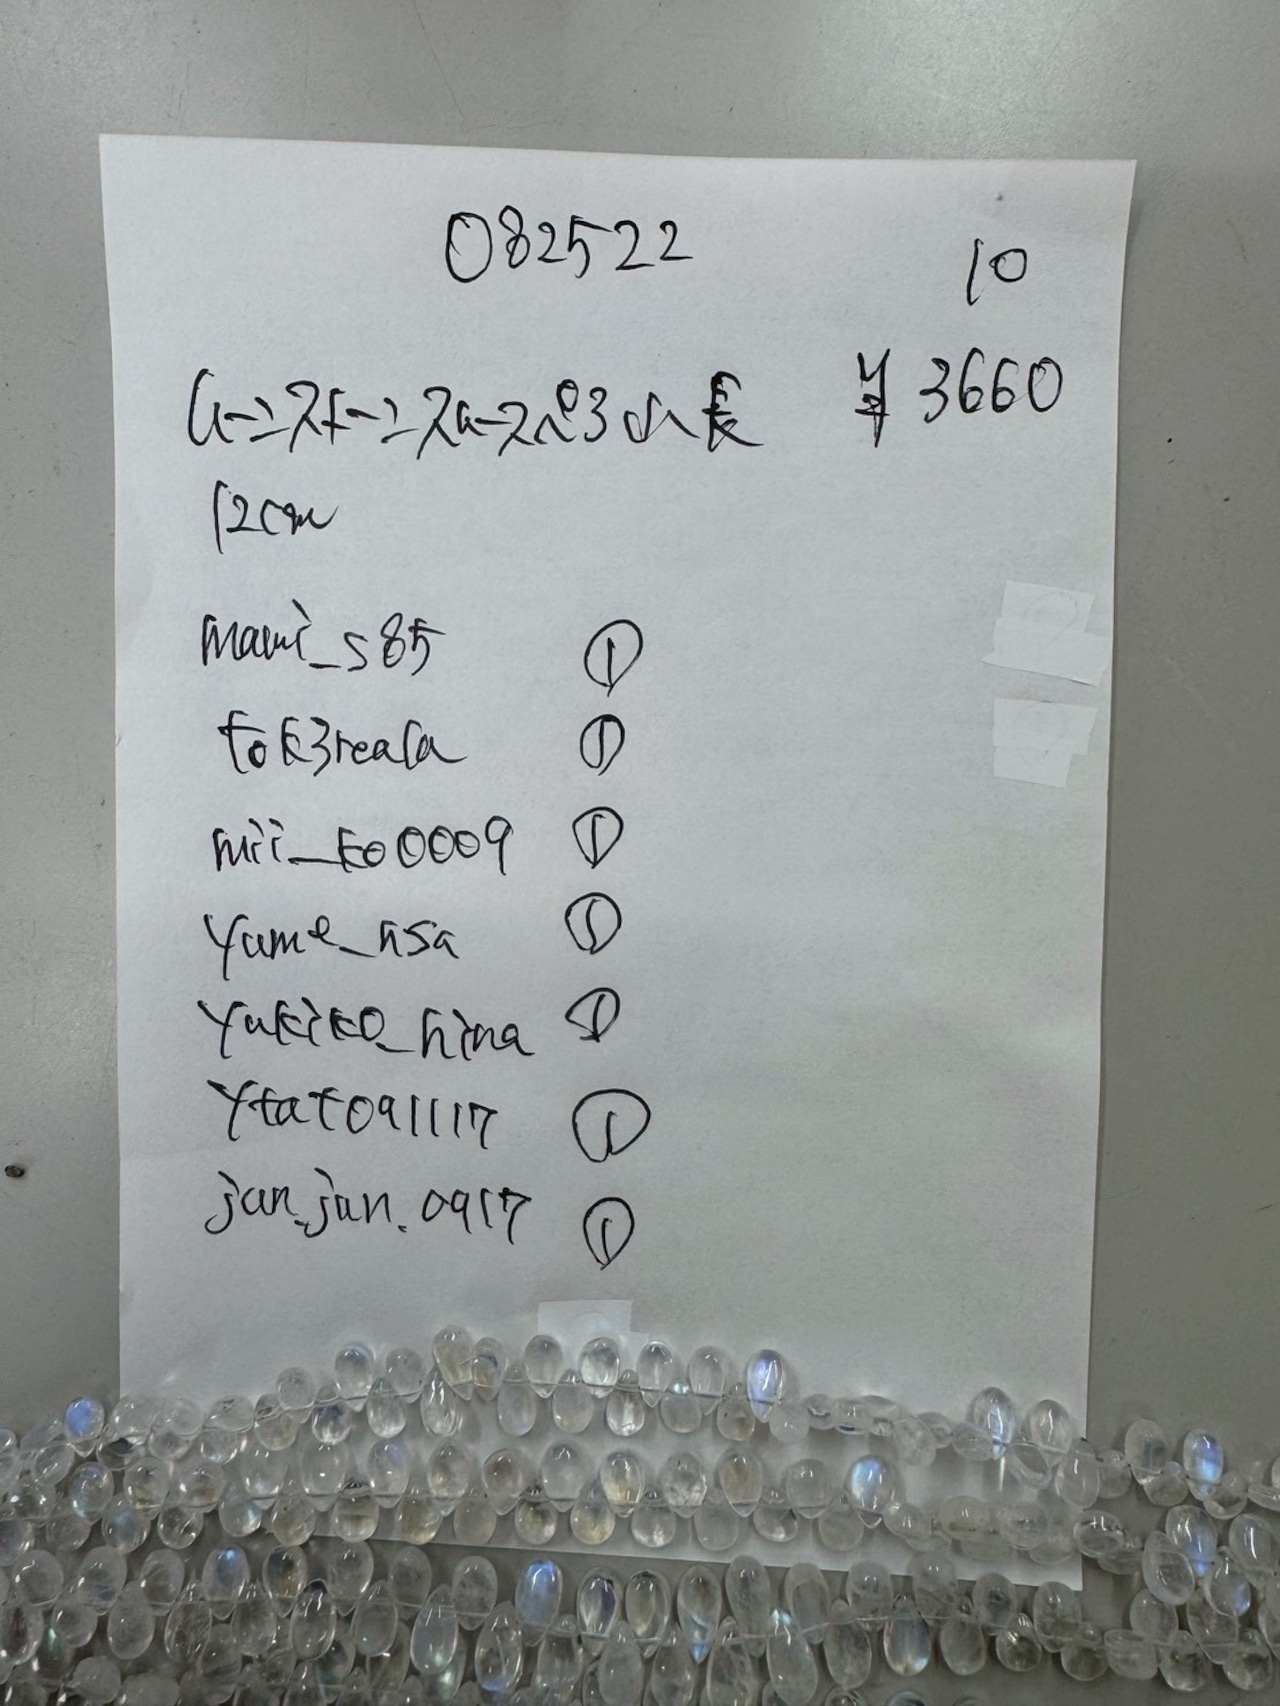 082522
10
¥3660
12cm
mami_s85 ①
tok3reala ①
mii_ko0009 ①
yume_hsa ①
yukiko_hina ①
ytat091117 ①
jun.jun.0917 ①